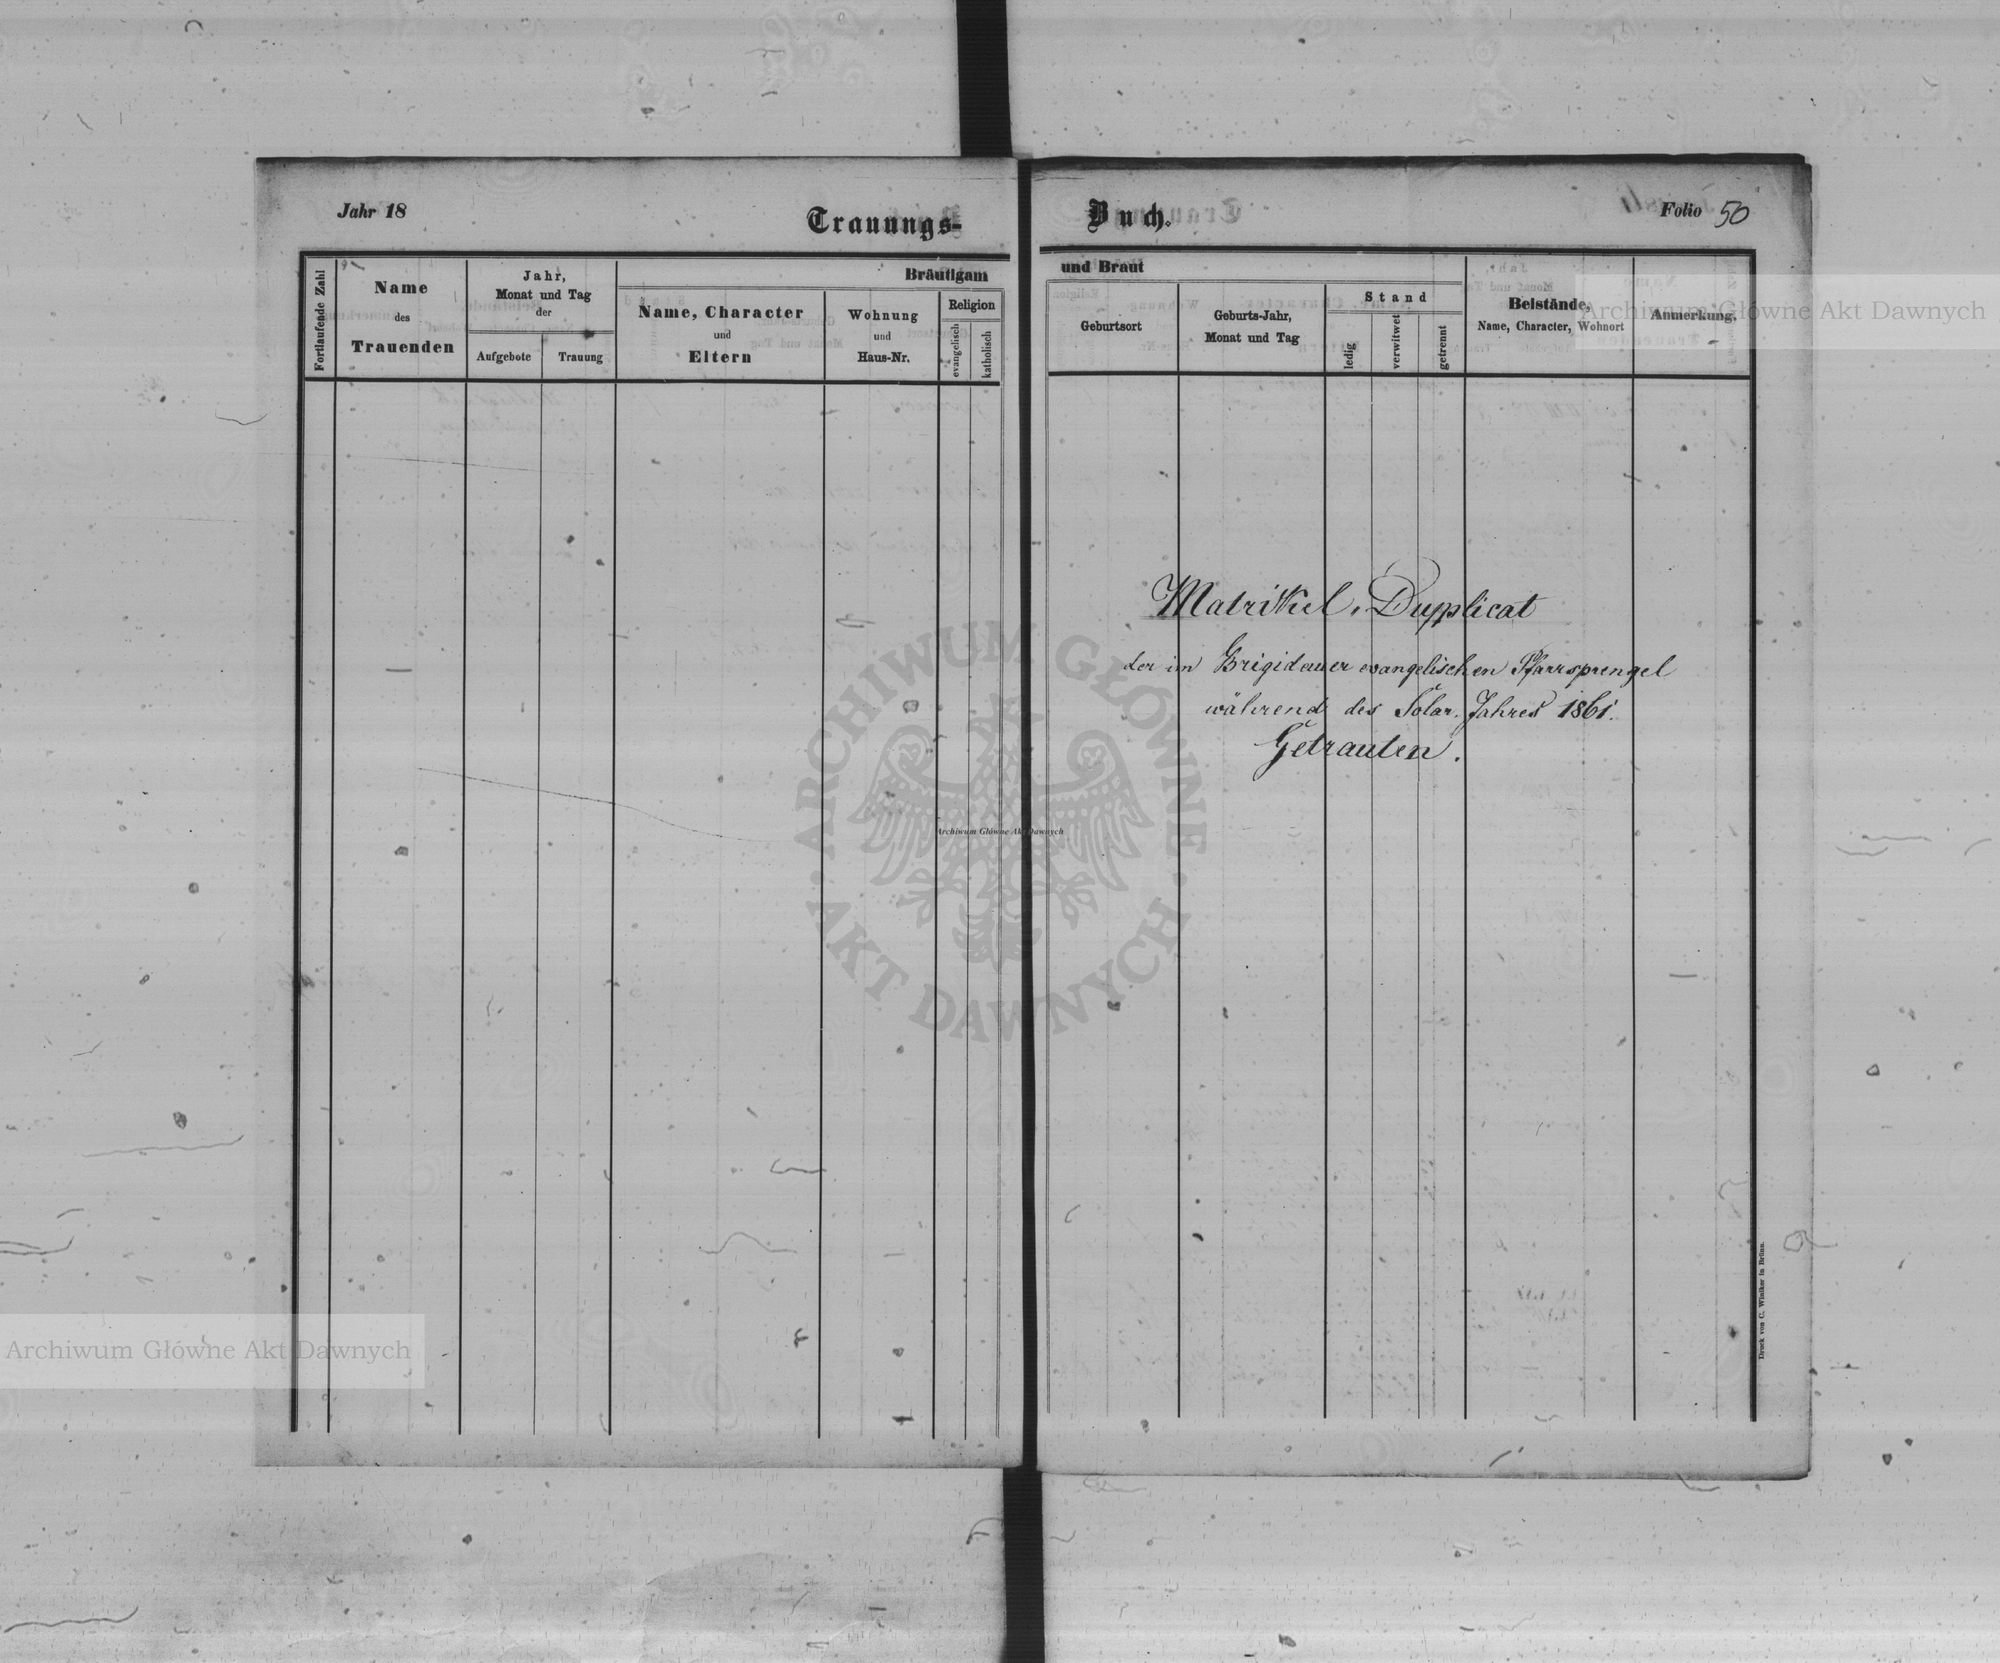 Jahr 18
Trauungs-
Buch.
Folio 50
Fortlaufende Zahl
Name
des
Trauenden
Jahr,
Monat und Tag
der
Aufgebote
Trauung
Bräutigam
Name, Character
und
Eltern
Wohnung
und
Haus-Nr.
Religion
evangelisch
katholisch
und Braut
Geburtsort
Geburts-Jahr,
Monat und Tag
Stand
ledig
verwitwet
getrennt
Beistände,
Name, Character, Wohnort
Anmerkung.
Archiwum Główne Akt Dawnych
Matrikel-Duplicat
der im Brigidauer evangelischen Pfarrsprengel
während des Solar-Jahres 1861.
Getrauten.
ARCHIWUM GŁÓWNE
AKT DAWNYCH
Archiwum Główne Akt Dawnych
Archiwum Główne Akt Dawnych
Druck von C. Winiker in Brünn.